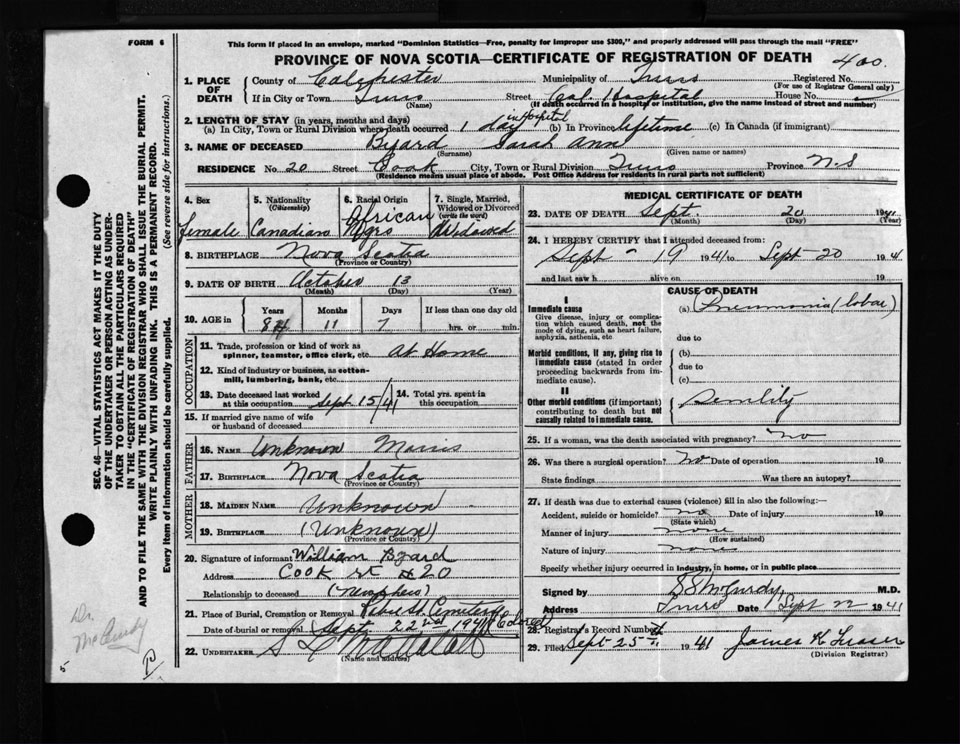 FORM 6
This form if placed in an envelope, marked "Dominion Statistics—Free, penalty for improper use $300," and properly addressed will pass through the mail "FREE"
PROVINCE OF NOVA SCOTIA—CERTIFICATE OF REGISTRATION OF DEATH 400
1. PLACE OF DEATH County of Colchester Municipality of Truro Registered No.
(For use of Registrar General only)
If in City or Town Truro Street Col. Hospital House No.
(Name) (If death occurred in a hospital or institution, give the name instead of street and number)
2. LENGTH OF STAY (in years, months and days)
(a) In City, Town or Rural Division where death occurred 1 day in hospital (b) In Province lifetime (c) In Canada (if immigrant)
3. NAME OF DECEASED Byard Sarah Ann
(Surname) (Given name or names)
RESIDENCE No. 20 Street Cook City, Town or Rural Division Truro Province N.S
(Residence means usual place of abode. Post Office Address for residents in rural parts not sufficient)
4. Sex Female
5. Nationality (Citizenship) Canadian
6. Racial Origin African Negro
7. Single, Married, Widowed or Divorced (write the word) Widowed
8. BIRTHPLACE Nova Scotia
(Province or Country)
9. DATE OF BIRTH October 13
(Month) (Day) (Year)
10. AGE in Years Months Days If less than one day old
84 11 7 hrs. or min.
OCCUPATION
11. Trade, profession or kind of work as spinner, teamster, office clerk, etc. At Home
12. Kind of industry or business, as cotton-mill, lumbering, bank, etc.
13. Date deceased last worked at this occupation Sept 15/41
14. Total yrs. spent in this occupation
15. If married give name of wife or husband of deceased
FATHER
16. NAME Unknown Morris
17. BIRTHPLACE Nova Scotia
(Province or Country)
MOTHER
18. MAIDEN NAME Unknown
19. BIRTHPLACE (Unknown)
(Province or Country)
20. Signature of informant William Byard
Address Cook st #20
Relationship to deceased (Nephew)
21. Place of Burial, Cremation or Removal Cemetery
Date of burial or removal Sept. 22nd 1941 (Colored)
22. UNDERTAKER
(Name and address)
MEDICAL CERTIFICATE OF DEATH
23. DATE OF DEATH Sept. 20 1941
(Month) (Day) (Year)
24. I HEREBY CERTIFY that I attended deceased from:
Sept - 19 1941 to Sept 20 1941
and last saw h alive on 19
CAUSE OF DEATH
I
Immediate cause
Give disease, injury or complication which caused death, not the mode of dying, such as heart failure, asphyxia, asthenia, etc
(a) Pneumonia (lobar)
due to
Morbid conditions, if any, giving rise to immediate cause (stated in order proceeding backwards from immediate cause).
(b)
due to
(c)
II
Other morbid conditions (if important) contributing to death but not causally related to immediate cause.
Senility
25. If a woman, was the death associated with pregnancy? no
26. Was there a surgical operation? no Date of operation 19
State findings Was there an autopsy?
27. If death was due to external causes (violence) fill in also the following:—
Accident, suicide or homicide? no Date of injury 19
(State which)
Manner of injury none
(How sustained)
Nature of injury none
Specify whether injury occurred in industry, in home, or in public place
Signed by S S McCurdy M.D.
Address Truro Date Sept 22 1941
28. Registrar's Record Number
29. Filed Sept 25 1941 James K Fraser
(Division Registrar)
SEC. 46—VITAL STATISTICS ACT MAKES IT THE DUTY
OF THE UNDERTAKER OR PERSON ACTING AS UNDER-
TAKER TO OBTAIN ALL THE PARTICULARS REQUIRED
IN THE "CERTIFICATE OF REGISTRATION OF DEATH"
AND TO FILE THE SAME WITH THE DIVISION REGISTRAR WHO SHALL ISSUE THE BURIAL PERMIT.
WRITE PLAINLY WITH UNFADING INK. THIS IS A PERMANENT RECORD.
Every item of information should be carefully supplied. (See reverse side for instructions.)
Dr.
McCurdy
5